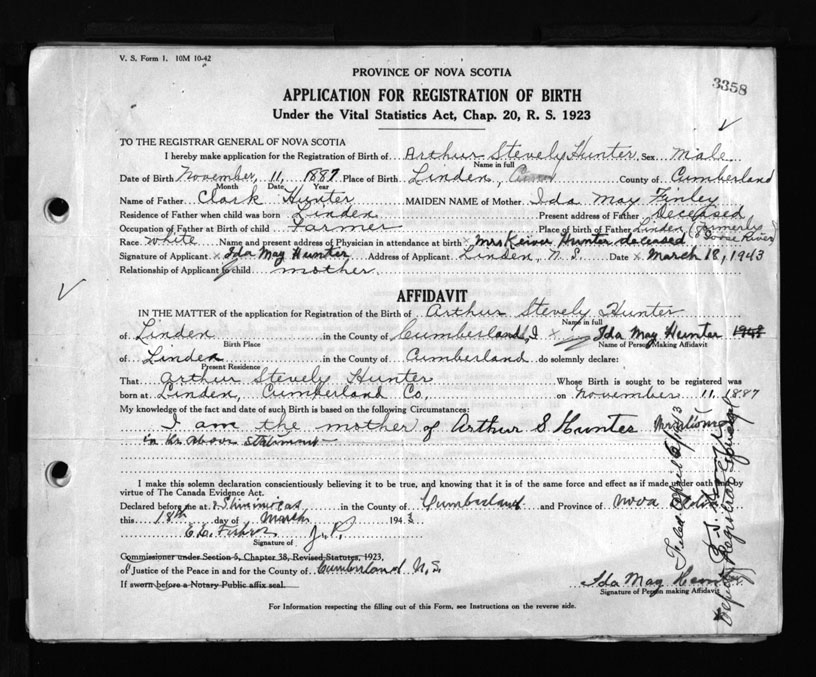 V. S. Form 1. 10M 10-42
3358
PROVINCE OF NOVA SCOTIA
APPLICATION FOR REGISTRATION OF BIRTH
Under the Vital Statistics Act, Chap. 20, R. S. 1923
TO THE REGISTRAR GENERAL OF NOVA SCOTIA
I hereby make application for the Registration of Birth of Arthur Stevely Hunter Sex Male
Name in full
Date of Birth November, 11, 1887 Place of Birth Linden, County of Cumberland
Month Date Year
Name of Father Clark Hunter MAIDEN NAME of Mother Ida May Finley
Residence of Father when child was born Linden Present address of Father deceased
Occupation of Father at Birth of child Farmer Place of birth of Father Linden (formerly Goose River)
Race White Name and present address of Physician in attendance at birth Mrs Keiver Hunter deceased
Signature of Applicant x Ida May Hunter Address of Applicant Linden, N. S. Date x March 18, 1943
Relationship of Applicant to child mother
AFFIDAVIT
IN THE MATTER of the application for Registration of the Birth of Arthur Stevely Hunter
Name in full
of Linden in the County of Cumberland, I x Ida May Hunter 1943
Birth Place Name of Person Making Affidavit
of Linden in the County of Cumberland do solemnly declare:
Present Residence
That Arthur Stevely Hunter Whose Birth is sought to be registered was
born at Linden, Cumberland Co. on November 11, 1887
My knowledge of the fact and date of such Birth is based on the following Circumstances:
I am the mother of Arthur S Hunter mentioned
in the above statement
I make this solemn declaration conscientiously believing it to be true, and knowing that it is of the same force and effect as if made under oath and by
virtue of The Canada Evidence Act.
Declared before me at Shinimicas in the County of Cumberland and Province of Nova Scotia
this 18th day of March 1943
J. P.
Signature of
Commissioner under Section 5, Chapter 38, Revised Statutes, 1923,
of Justice of the Peace in and for the County of Cumberland N.S.
If sworn before a Notary Public affix seal.
Ida May Hunter
Signature of Person making Affidavit
For Information respecting the filling out of this Form, see Instructions on the reverse side.
Filed April
Deputy Registrar General